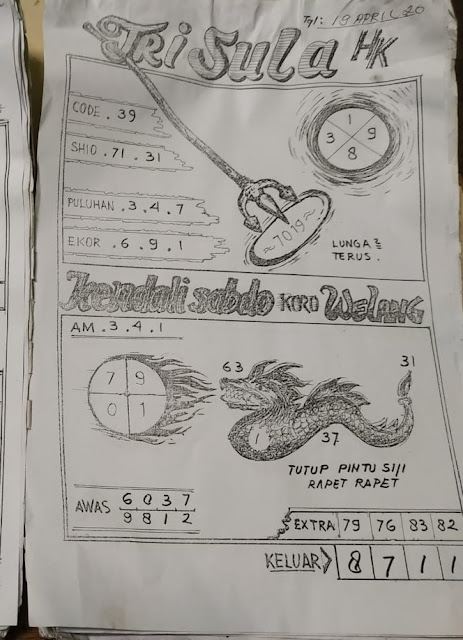 Tgl: 19 APRIL 20
TRISULA HK
CODE . 39
SHIO . 71 . 31
PULUHAN . 3 . 4 . 7
EKOR . 6 . 9 . 1
1
3 9
8
~ 7019 ~
LUNGA2
TERUS .
Kendali sabdo KORO WELANG
AM . 3 . 4 . 1
7 9
0 1
63
31
1
37
TUTUP PINTU SIJI
RAPET RAPET
AWAS 6 0 3 7
9 8 1 2
EXTRA 79 76 83 82
KELUAR> 8 7 1 1